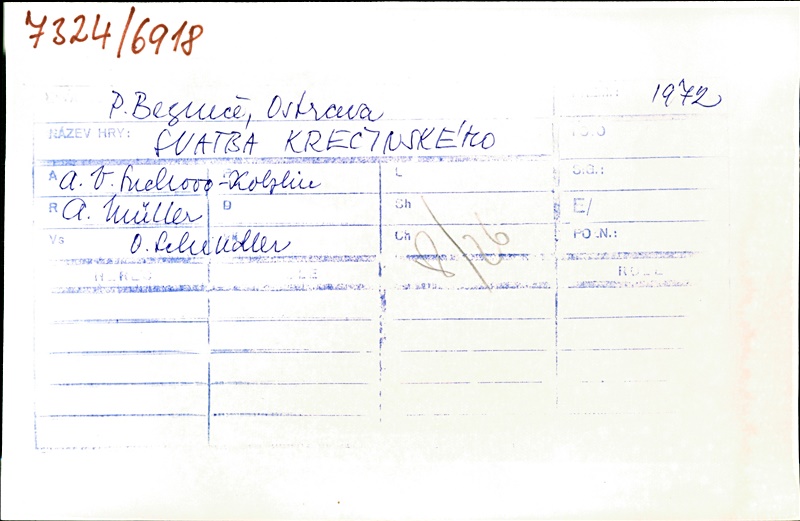 7324/6918
P. Bezruče, Ostrava 1972
NÁZEV HRY: SVATBA KREČINSKÉHO
A A. V. Suchovo-Kobylin L S.G.:
R A. Müller D Sh E/
Vs O. Schindler Ch POZN.:
HEREC ROLE ROLE